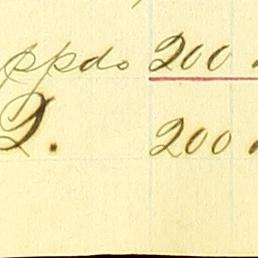 ppdo 200
D. 200